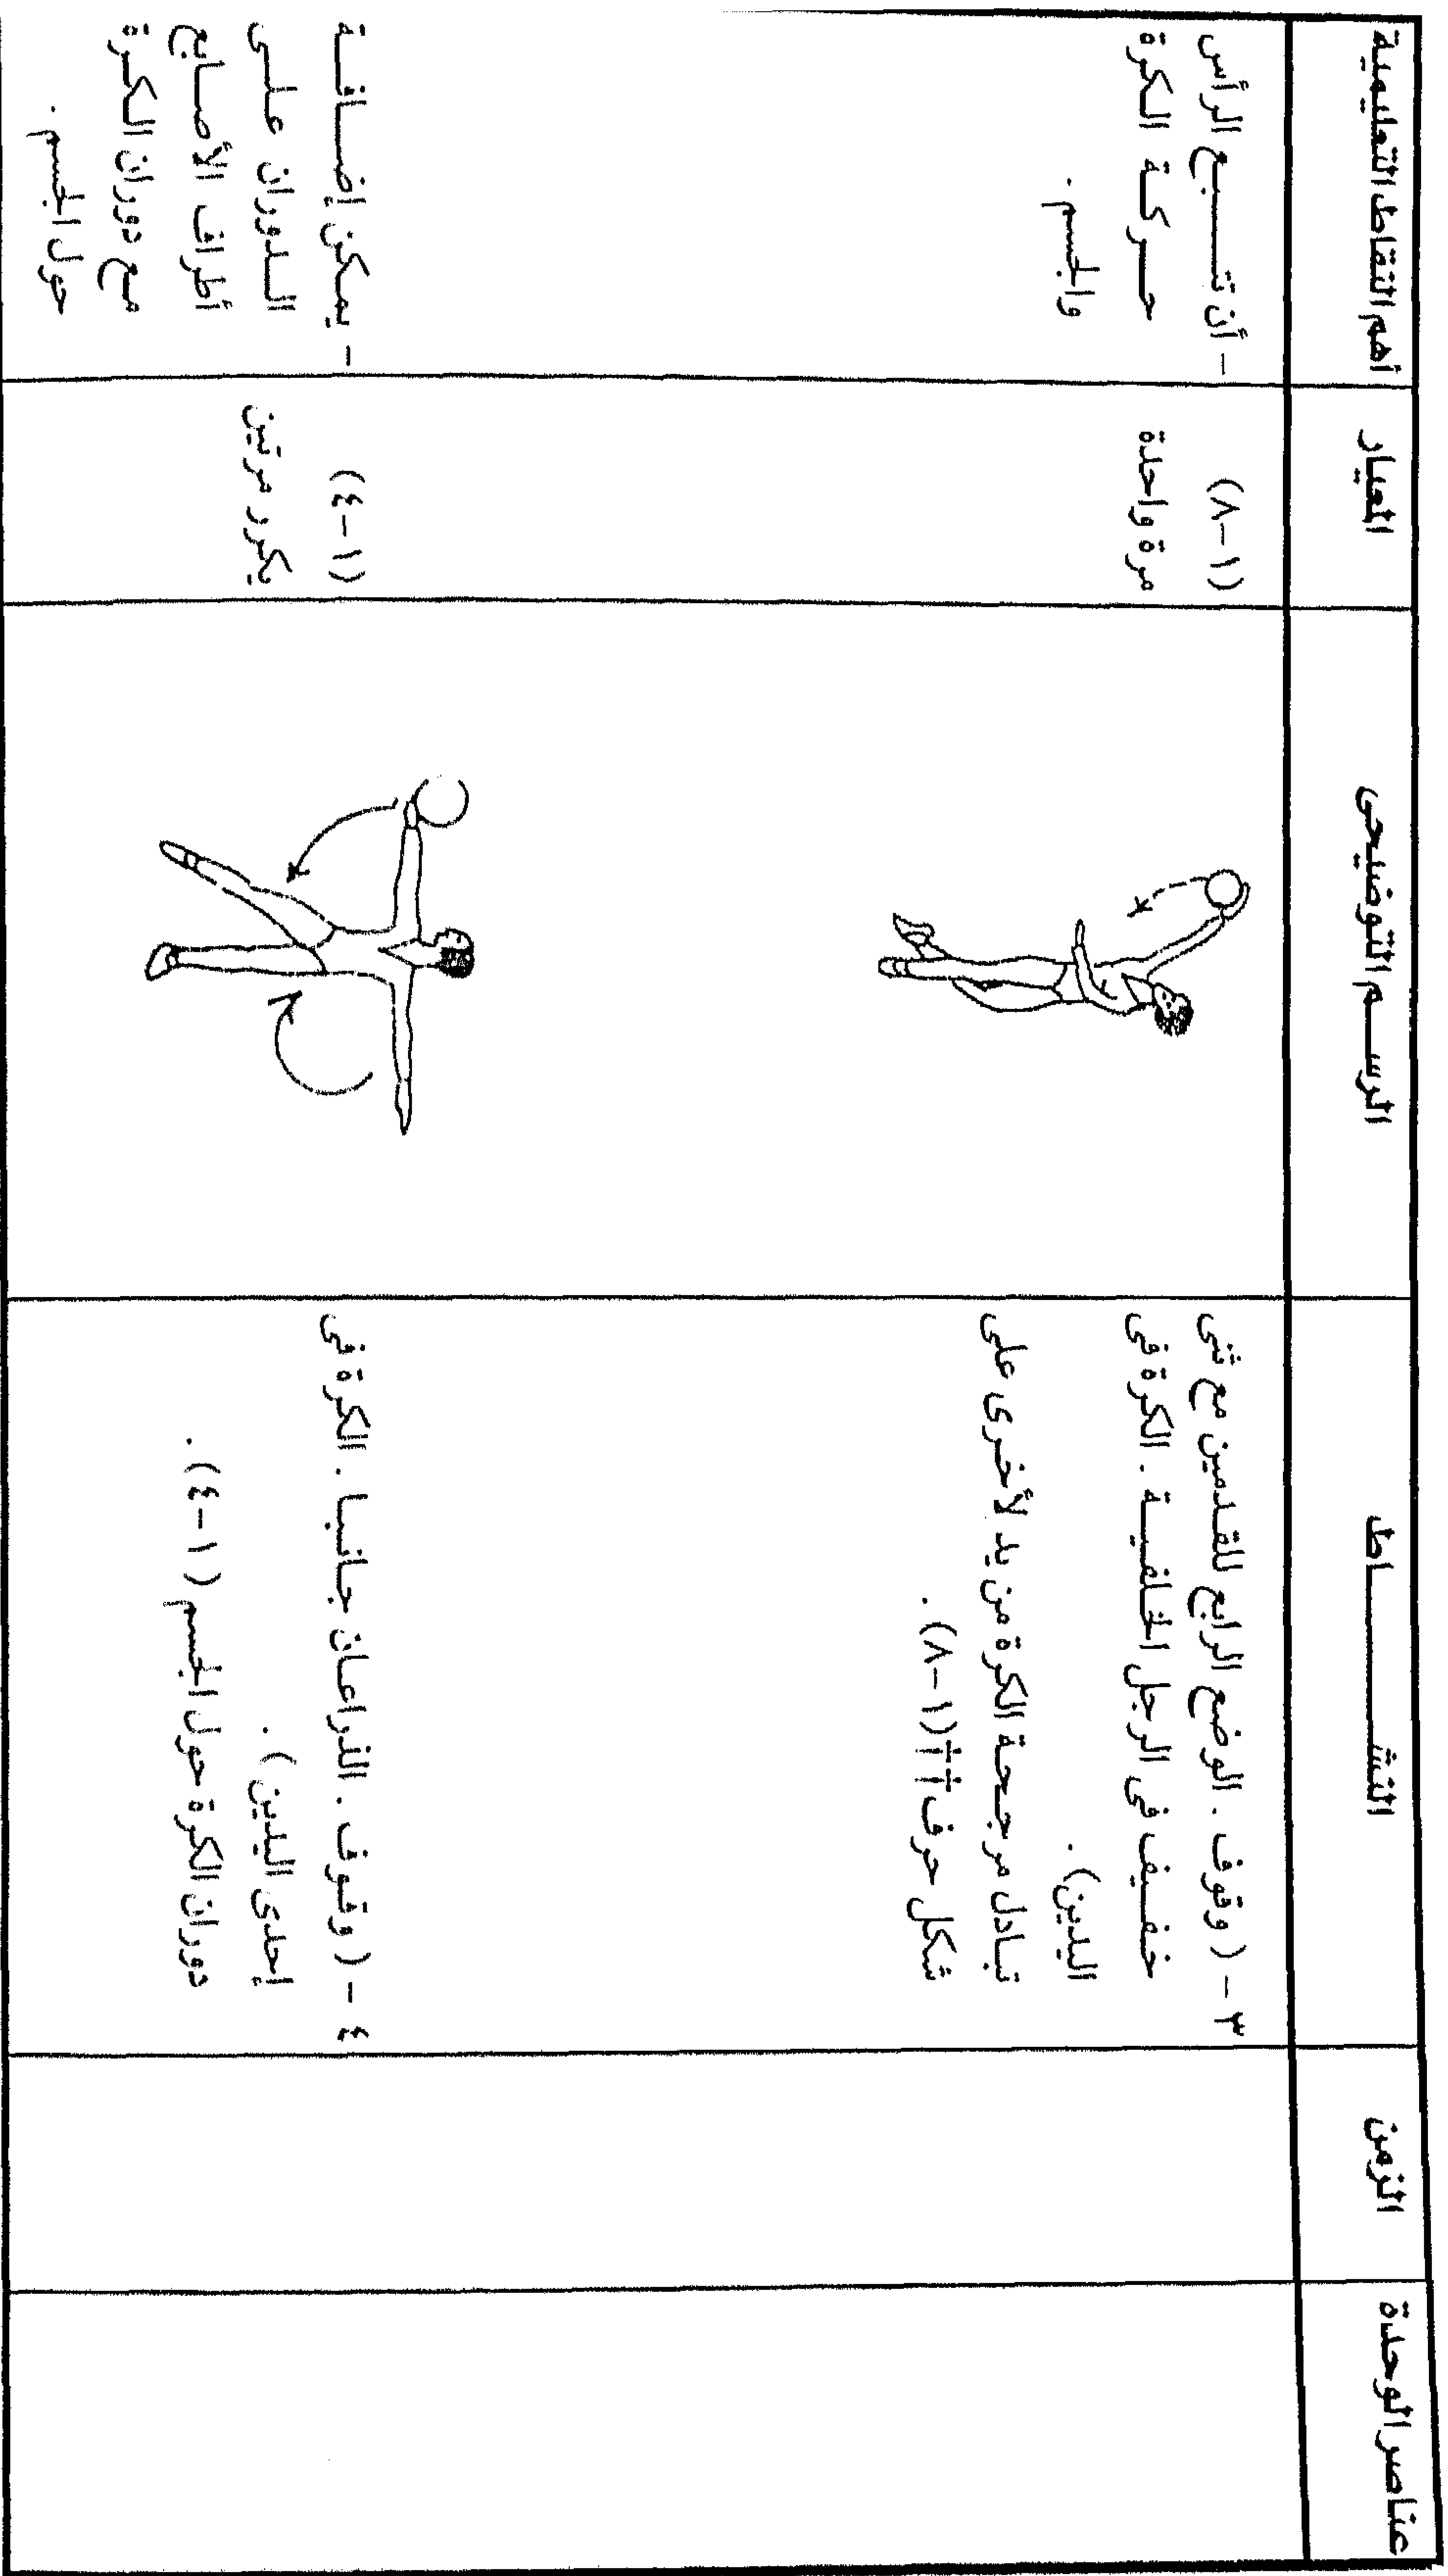 عناصر الوحدة
الزمن
النشـــــــاط
الرســم التوضيحى
المعيار
أهم النقاط التعليمية
٣ - ( وقوف . الوضع الرابع للقدمين مع ثنى
خفـيـف فى الرجل الخلفيـة . الكرة فى
اليدين) .
تبـادل مرجـحـة الكرة من يد لأخـرى على
شكل حرف †† (١-٨) .
(١-٨)
مرة واحدة
- أن تتــبع الرأس
حـركـة الكرة
والجسم .
٤ - ( وقـوف . الذراعـان جـانبـا . الكرة فى
إحدى اليدين ) .
دوران الكرة حول الجسم (١-٤) .
(١-٤)
يكرر مرتين
- يمكن إضـافــة
الـدوران علـى
أطراف الأصـابع
مع دوران الكـرة
حول الجسم .